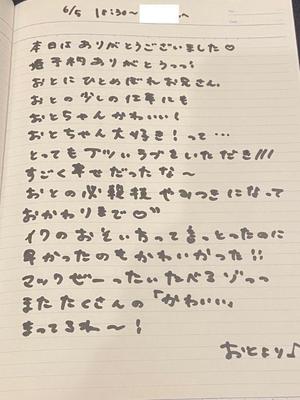 6/5 18:30~
本日はありがとうございました♡
姫予約ありがとうっっ!
おとにひとめぼれお兄さん
おとの少しの仕草にも
おとちゃんかわいい!
おとちゃん大好き!って…
とってもアツいラヴをいただき///
すごく幸せだったな~
おとの必殺技やみつきになって
おかわりまで♡"
イクのおそいちって言っとったのに
早かったのもかわいかった!!
マックぜーったいたべるゾっっ
またたくさんの「かわいい」
まってるね~!
おとより♪